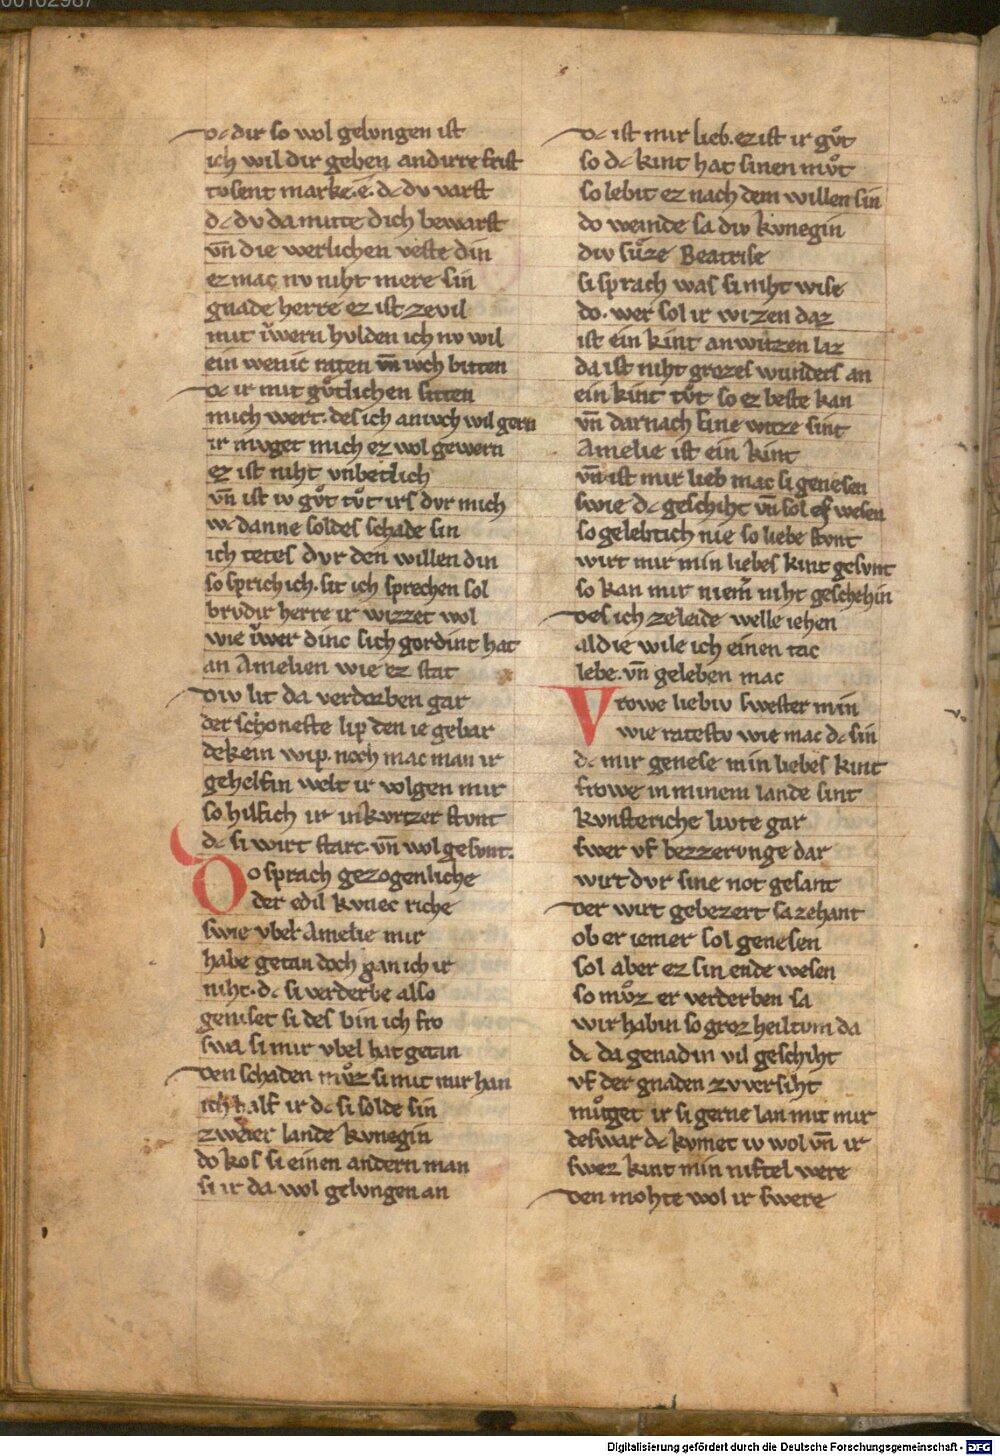 dc dir so wol gelvngen ist
ich wil dir geben andirre frist
tvsent marke. e. dc dv varst
dc dv da mitte dich bewarst
vn̄ die werlichen veste din
ez mac nv niht mere sin
gnade herre ez ist ze vil
mit v̓wern hvlden ich nv wil
ein wenic raten vn̄ ivch bitten
dc ir mit gvͦtlichen sitten
mich wert. des ich an ivch wil gern
ir mvget mich ez wol gewern
ez ist niht vnbetlich
vn̄ ist iv gvͦt tvͦt irs dvr mich
wc danne soldes schade sin
ich tetes dvr den willen din
so sprich ich. sit ich sprechen sol
brvdir herre ir wizzet wol
wie v̓wer dinc sich gordint hat
an Amelien wie ez stat
div lit da verdorben gar
der schoneste lip den ie gebar
dekein wip. noch mac man ir
gehelfin welt ir volgen mir
so hilfich ir in kvrtzer stvnt
dc si wirt starc. vn̄ wol gesvnt.
Do sprach gezogenliche
der edil kvnec riche
swie vbel Amelie mir
habe getan doch gan ich ir
niht. dc si verderbe also
geniset si des bin ich fro
swa si mir vbel hat getan
den schaden mvͦz si mit mir han
ich half ir dc si solde sin
zweier lande kvnegin
do kos si einen andern man
si ir da wol gelvngen an
dc ist mir lieb. ez ist ir gvͦt
so dc kint hat sinen mvͦt
so lebit ez nach dem willen sin
do weinde sa div kvnegin
div svͤze Beatrise
si sprach was si niht wise
do. wer sol ir wizen daz
ist ein kint an witzen laz
da ist niht grozes wunders an
ein kint tvͦt so ez beste kan
vn̄ dar nach sine witze sint
Amelie ist ein kint
vn̄ ist mir lieb mac si genesen
swie dc geschiht vn̄ sol ef wesen
so gelebtich nie so liebe stvnt
wirt mir min liebes kint gesvnt
so kan mir niem̄ niht geschehin
des ich ze leide welle iehen
al die wile ich einen tac
lebe. vn̄ geleben mac
Vrowe liebiv swester min
wie ratestv wie mac dc sin
dc mir genese min liebes kint
frowe in minem lande sint
kvnsteriche livte gar
swer vf bezzervnge dar
wirt dvr sine not gesant
der wirt gebezert sa zehant
ob er iemer sol genesen
sol aber ez sin ende wesen
so mvͦz er verderben sa
wir habin so groz heiltvm da
dc da genadin vil geschiht
vf der gnaden zv versiht
mvͤget ir si gerne lan mit mir
deswar dc kvmet iv wol vn̄ ir
swez kint min niftel were
den mohte wol ir swere
Digitalisierung gefördert durch die Deutsche Forschungsgemeinschaft - DFG